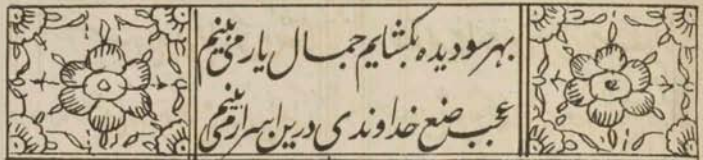 بهر سو دیده بکشایم جمال یار می بینم
عجب صنع خداوندی درین اسرار می بینم